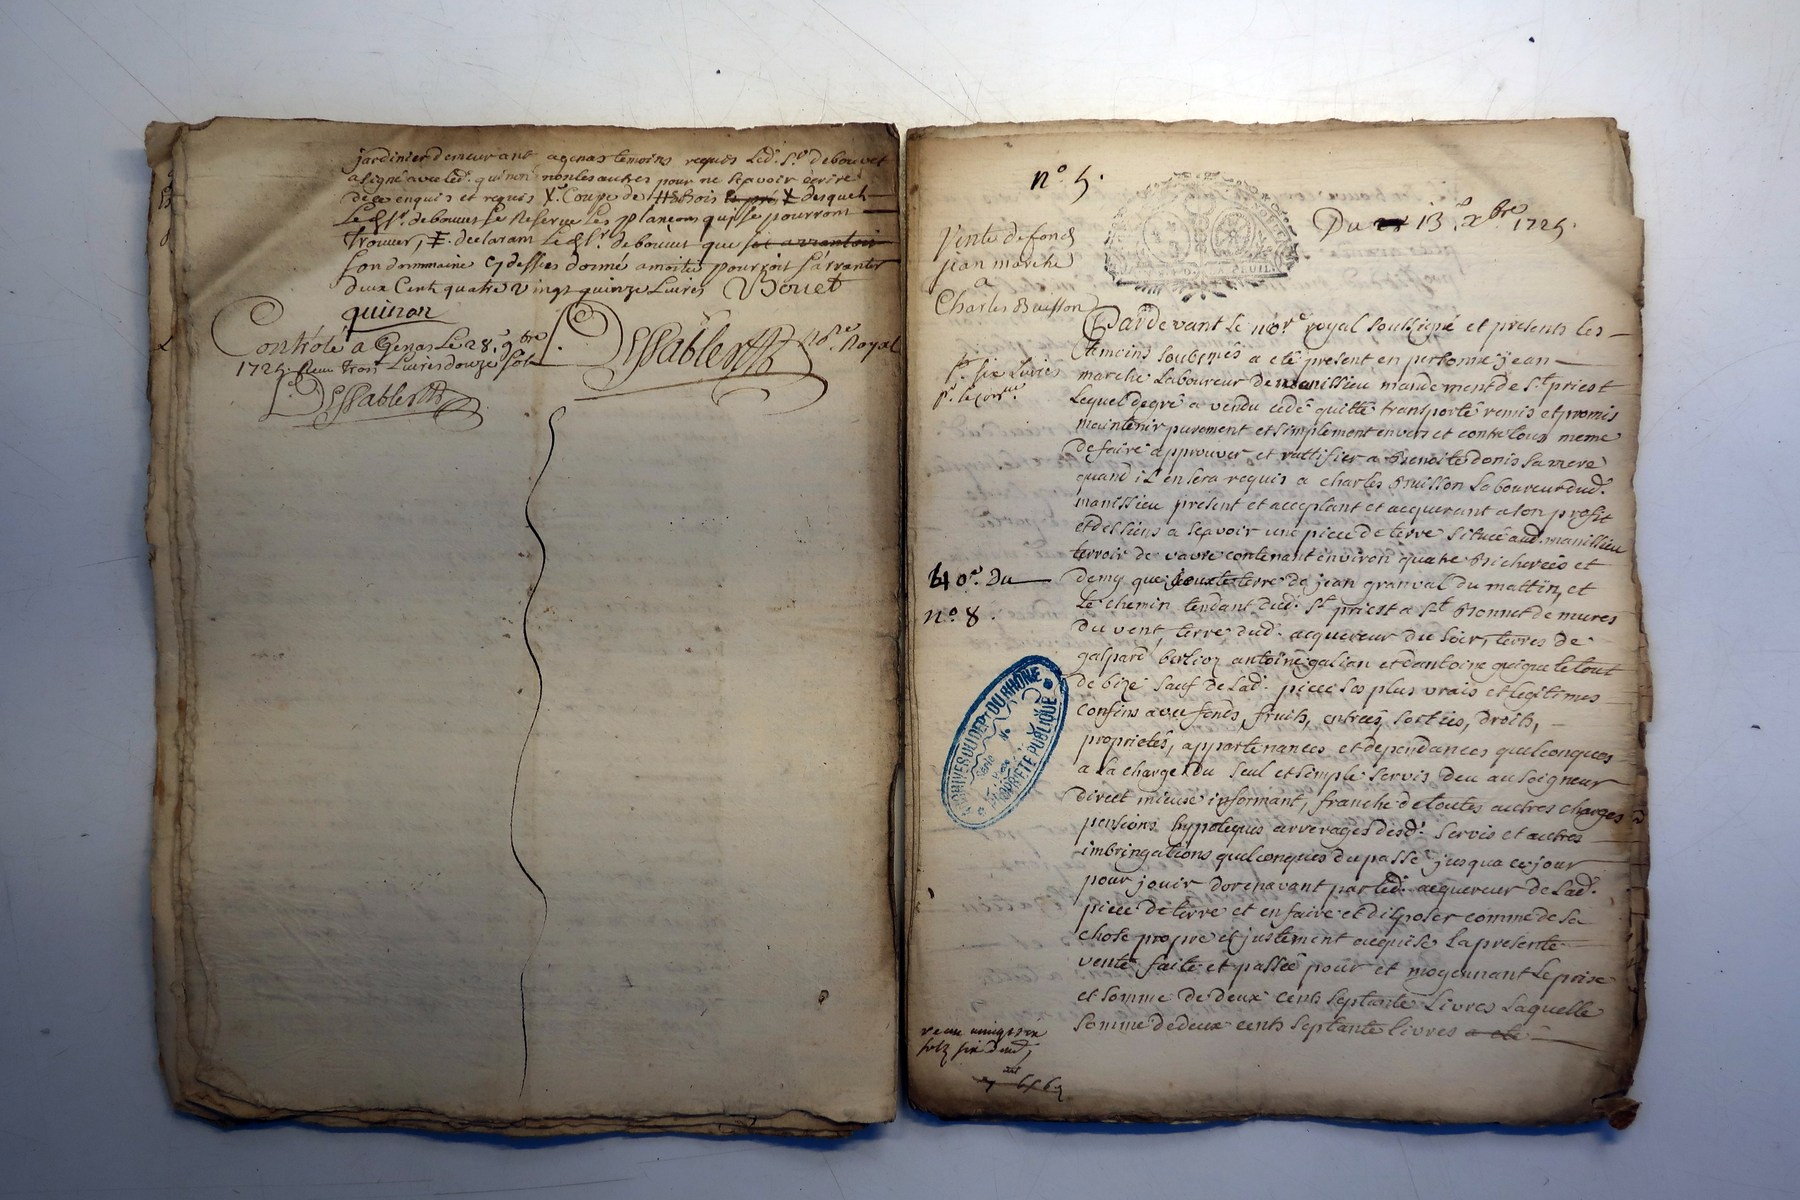 jardinier demeurant a genas temoins requis led. Sr. debouvet
a signé avec led. quinon non les autres pour ne scavoir ecrire
de ce enquis et requis X. Coupe de bois le pré X desquels
le d. Sr. debouvet se Reserve les plançons qui se pourront
trouver, X. declarant le d. Sr. debouvet que
son dommaine cy dessus donné a moitié pourroit s'arranter
deux Cent quatre vingt quinze Livres Bouet
quinon
Contrôlé a Genas Le 28. 9bre
1725. Reçu trois Livres douze sols
Dessablettz
Dessablettz nore. Royal
n°. 5.
Du 13. xbre 1725.
Vente de fonds
jean marche
a
Charles Buisson
pr. six Livres
Pardevant le nore. royal soussigné et presents les
temoins soubsnés a eté present en personne jean
marche Laboureur de manissieu mandement de St. priest
Lequel de gré a vendu cedé quitté transporté remis et promis
maintenir purement et simplement envers et contre tous meme
de faire approuver et rattifier a Benoite donis sa mere
quand il en sera requis a Charles Buisson Laboureur dud.
manissieu present et acceptant et acquerant a son profit
et des siens a scavoir une piece de terre situeé aud. manissieu
terroir de vavre contenant environ quatre Bicherées et
demy que jouxte terre de jean granval du mattin, et
Le chemin tendant dud. St. priest a St. Bonnet de mures
Du vent, terre dud. acquereur du soir, terres de
gaspard berlioz antoine galian et d'antoine guigue le tout
de bize sauf de lad. piece ses plus vrais et legitimes
confins avec fonds, fruits, entreés, sortiës, droits,
proprietés, appartenances et dependances quelconques
a la charge du seul et simple servis deu au seigneur
direct mieux informant, franche de toutes autres charges
pensions hypoteques arrerages desd. servis et autres
imbringations quelconques du passé jusqua ce jour
pour jouir dorenavant par led. acquereur de lad.
piece de terre et en faire et disposer comme de sa
chose propre et justement acquise La presente
vente faite et passeé pour et moyennant Le prix
et somme de deux cents septante Livres Laquelle
somme de deux cents septante livres a eté
40e. du
n°. 8.
ARCHIVES DU DEPT DU RHONE
Série
PROPRIÉTÉ PUBLIQUE